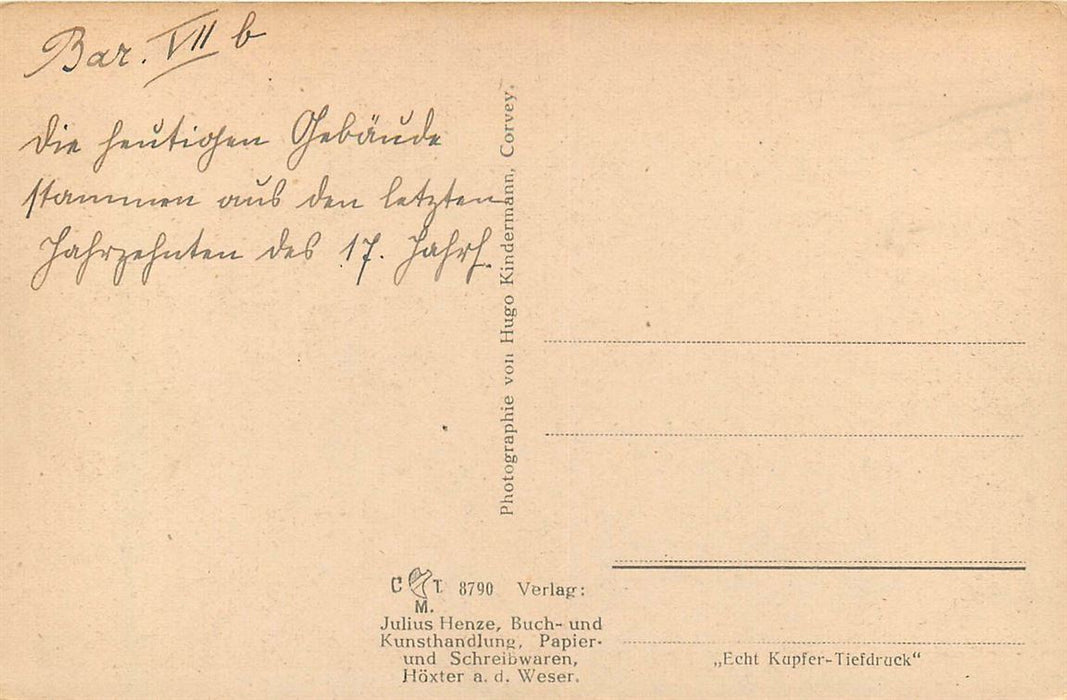 Bar. VII b
Die heutigen Gebäude
stammen aus den letzten
Jahrzehnten des 17. Jahrh.
Photographie von Hugo Kindermann, Corvey.
C T. 8790 Verlag:
M.
Julius Henze, Buch- und
Kunsthandlung, Papier-
und Schreibwaren,
Höxter a. d. Weser.
„Echt Kupfer-Tiefdruck“